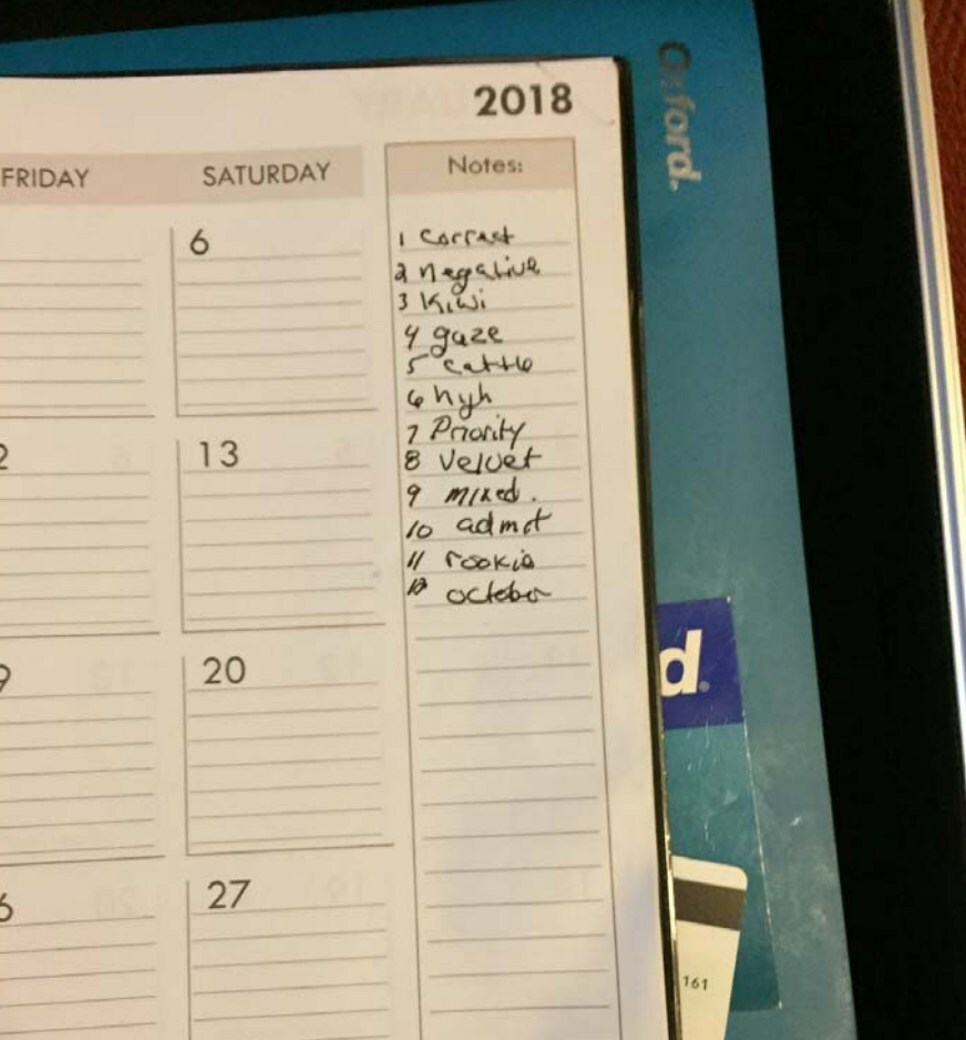 2018
FRIDAY SATURDAY Notes:
6
1
2 negative
3 Kiwi
4 gaze
5 cattle
6
7 Priority
2 13
8 Velvet
9 mixed.
10
11 rookie
12 october
9 20
6 27
Oxford.
d.
161